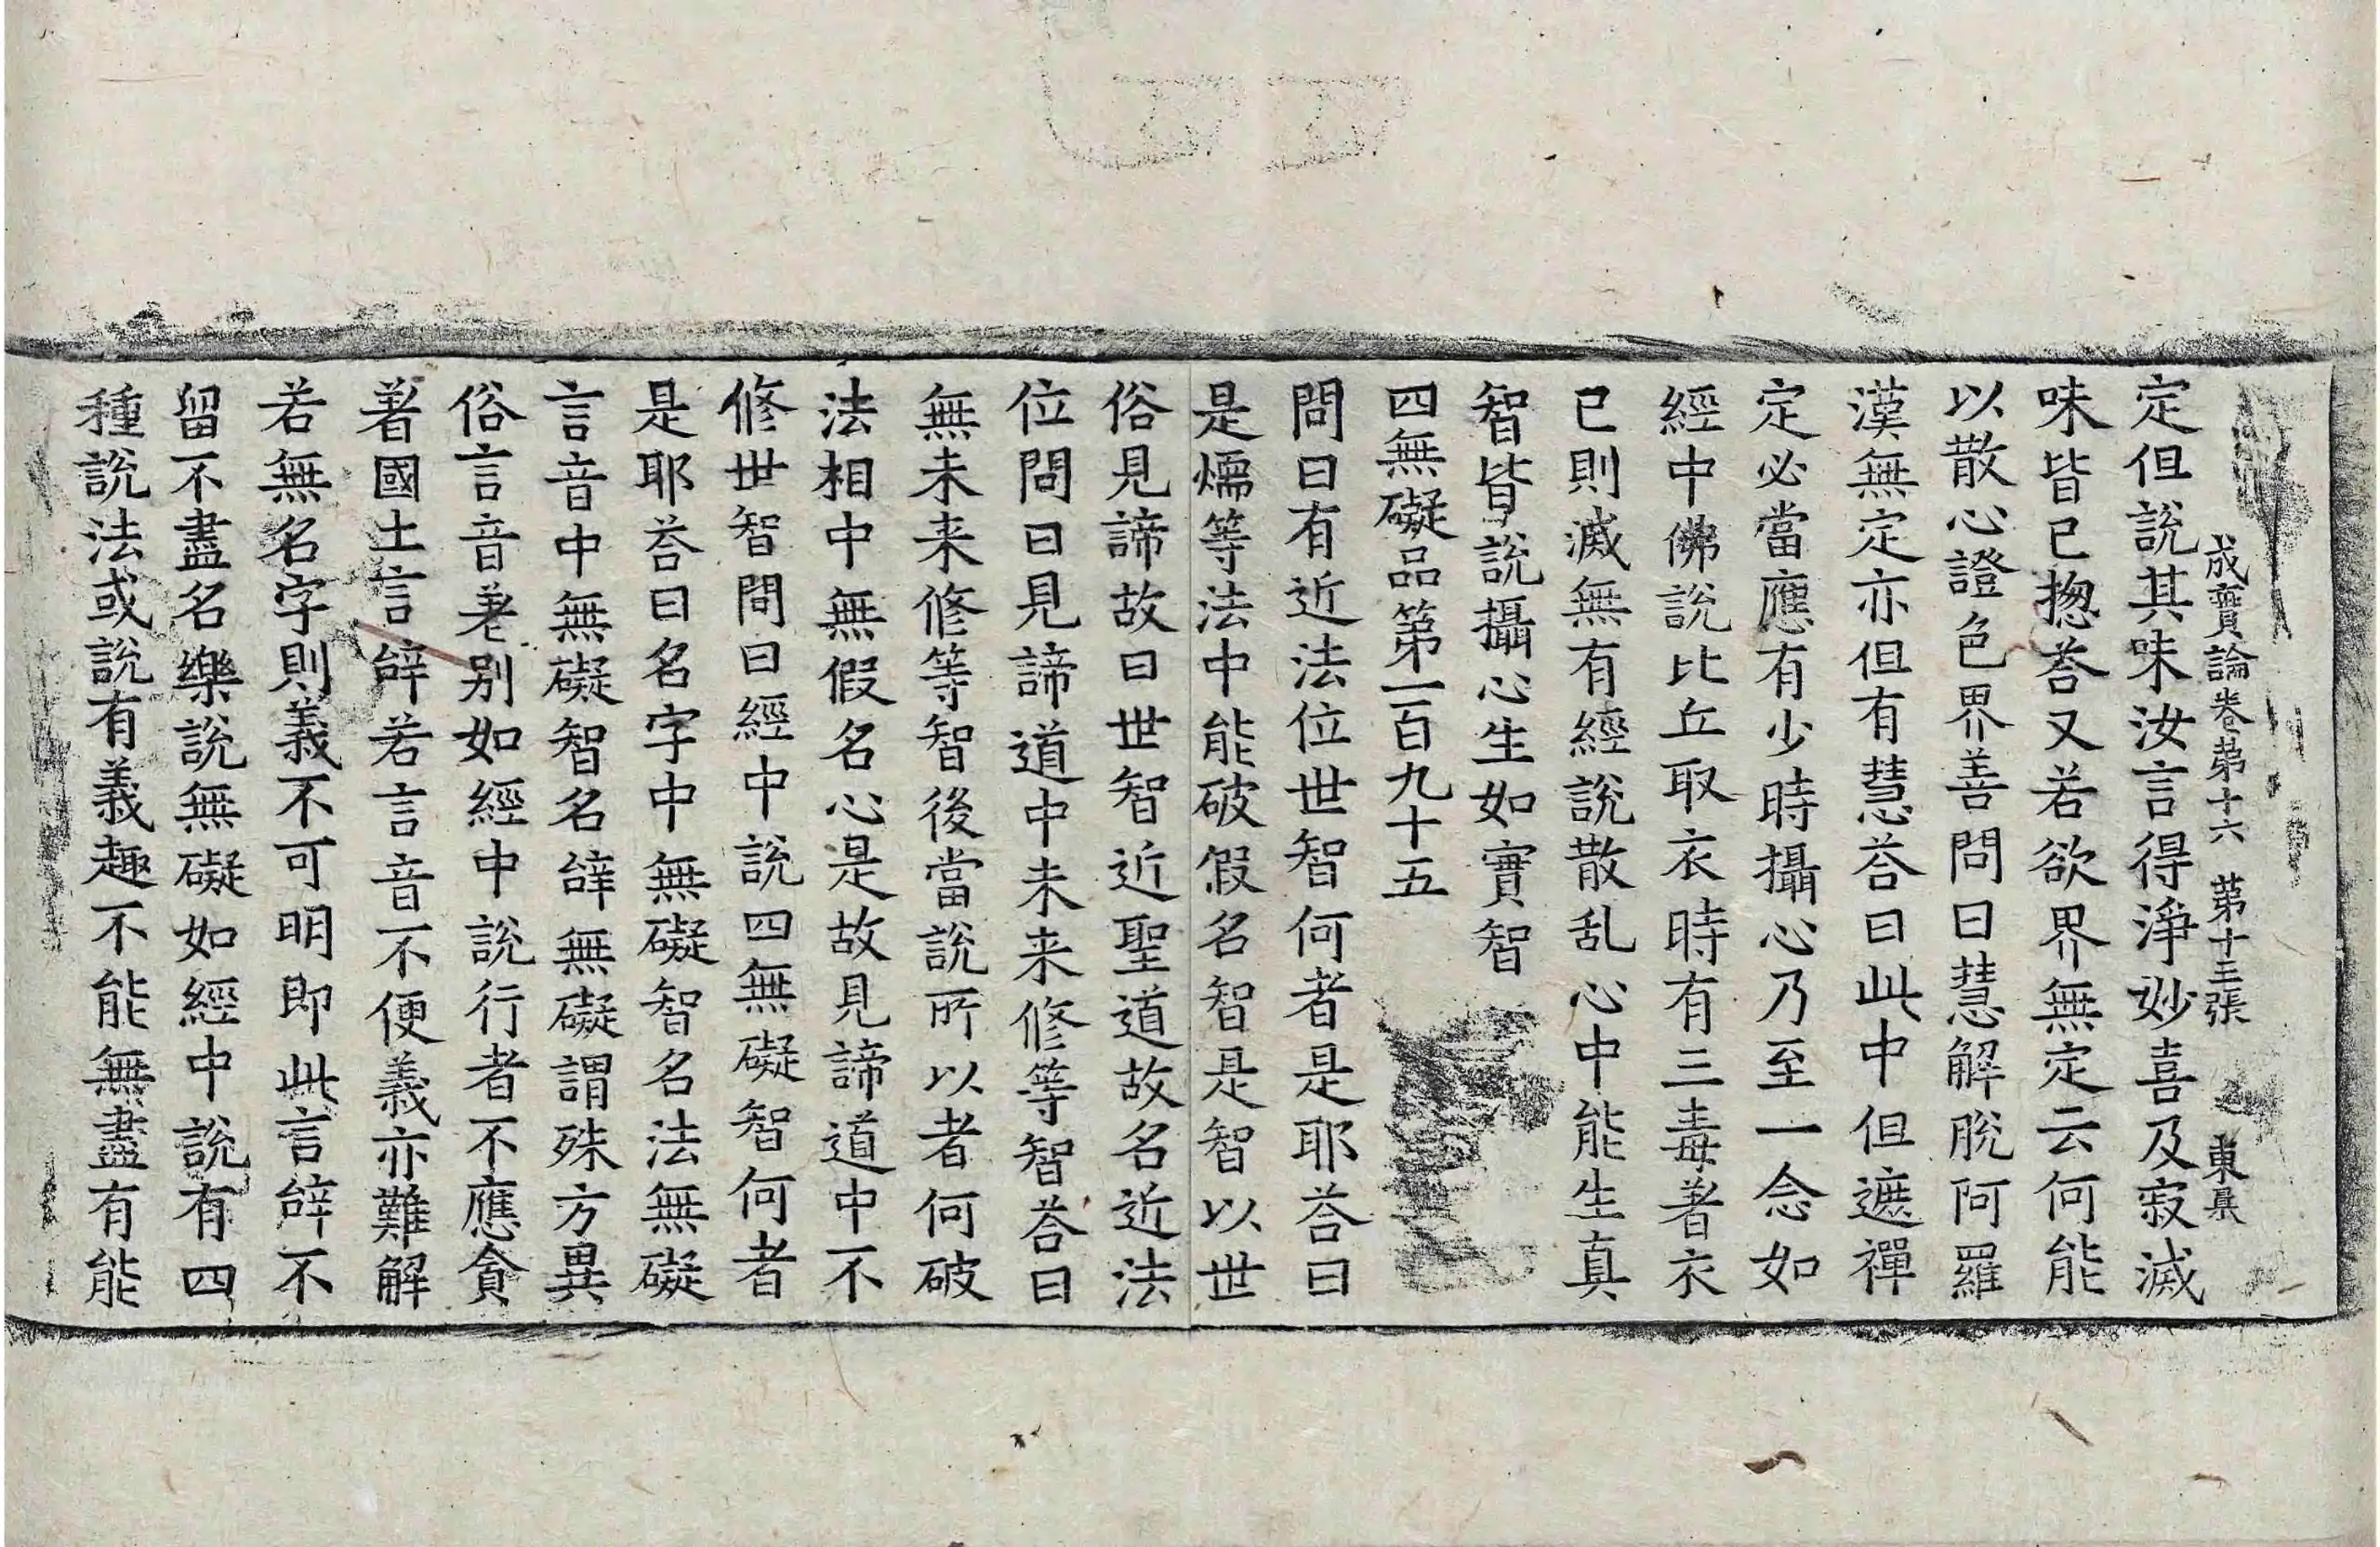 成實論卷第十六 第十三張 東
定但說其味汝言得淨妙喜及寂滅
味皆已揔荅又若欲界無定云何能
以散心證色界善問曰慧解脫阿羅
漢無定亦但有慧荅曰此中但遮禪
定必當應有少時攝心乃至一念如
經中佛說比丘取衣時有三毒著衣
已則滅無有經說散乱心中能生真
智皆說攝心生如實智
四無礙品第一百九十五
問曰有近法位世智何者是耶荅曰
是燸等法中能破假名智是智以世
俗見諦故曰世智近聖道故名近法
位問曰見諦道中未来修等智荅曰
無未来修等智後當說所以者何破
法相中無假名心是故見諦道中不
修世智問曰經中說四無礙智何者
是耶荅曰名字中無礙智名法無礙
言音中無礙智名辝無礙謂殊方異
俗言音差别如經中說行者不應貪
著國土言辝若言音不便義亦難解
若無名字則義不可明即此言辝不
留不盡名樂說無礙如經中說有四
種說法或說有義趣不能無盡有能